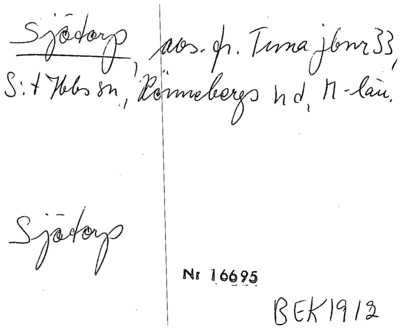 Sjötorp, avs. fr. Tuna jbnr 33,
S:t Ibbs sn, Rönnebergs hd, M-län.
Sjötorp
Nr 16695
BEK 1912